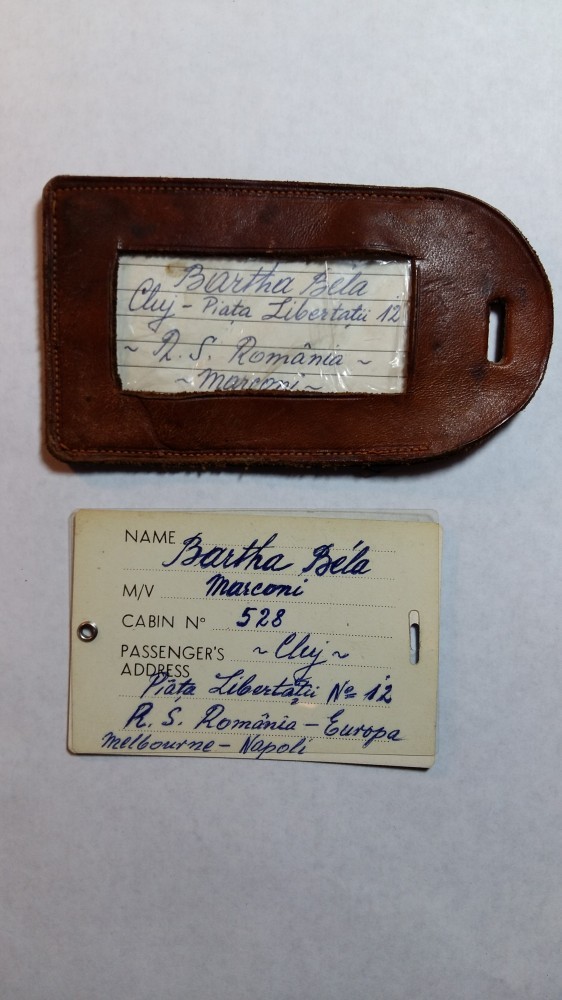 Bartha Béla
Cluj - Piața Libertății 12
~ R. S. România ~
~ Marconi ~
NAME Bartha Béla
M/V Marconi
CABIN Nº 528
PASSENGER'S ~ Cluj ~
ADDRESS
Piața Libertății Nº 12
R. S. România - Europa
Melbourne - Napoli